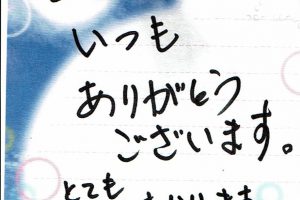 いつも
ありがとう
ございます。
とても